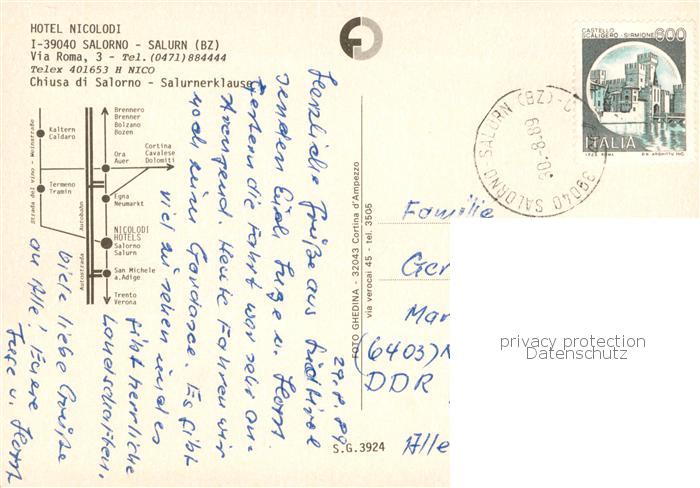 HOTEL NICOLODI
I-39040 SALORNO - SALURN (BZ)
Via Roma, 3 - Tel.(0471)884444
Telex 401653 H NICO
Chiusa di Salorno - Salurnerklause
Brennero
Brenner
Bolzano
Bozen
Kaltern
Caldaro
Cortina
Cavalese
Dolomiti
Ora
Auer
Termeno
Tramin
Egna
Neumarkt
Strada del vino - Weinstraße
Autobahn
Autostrada
NICOLODI
HOTELS
Salorno
Salurn
San Michele
a.Adige
Trento
Verona
29.8.89
Herzliche Grüße aus Südtirol
senden Euch Inge u. Horst
Gestern die Fahrt war sehr an-
strengend. Heute fahren wir
noch zum Gardasee. Es gibt
viel zu sehen und es
gibt herrliche
Landschaften.
Viele liebe Grüße
an Alle! Eure
Inge u. Horst
FOTO GHEDINA - 32043 Cortina d'Ampezzo
via verocai 45 - tel. 3505
S.G.3924
CASTELLO
SCALIGERO - SIRMIONE
600
ITALIA
I.P.Z.S. ROMA
39040 SALORNO SALURN (BZ)
30.8.89
Familie
Ger
Mar
(6403)
DDR
Alle
privacy protection
Datenschutz